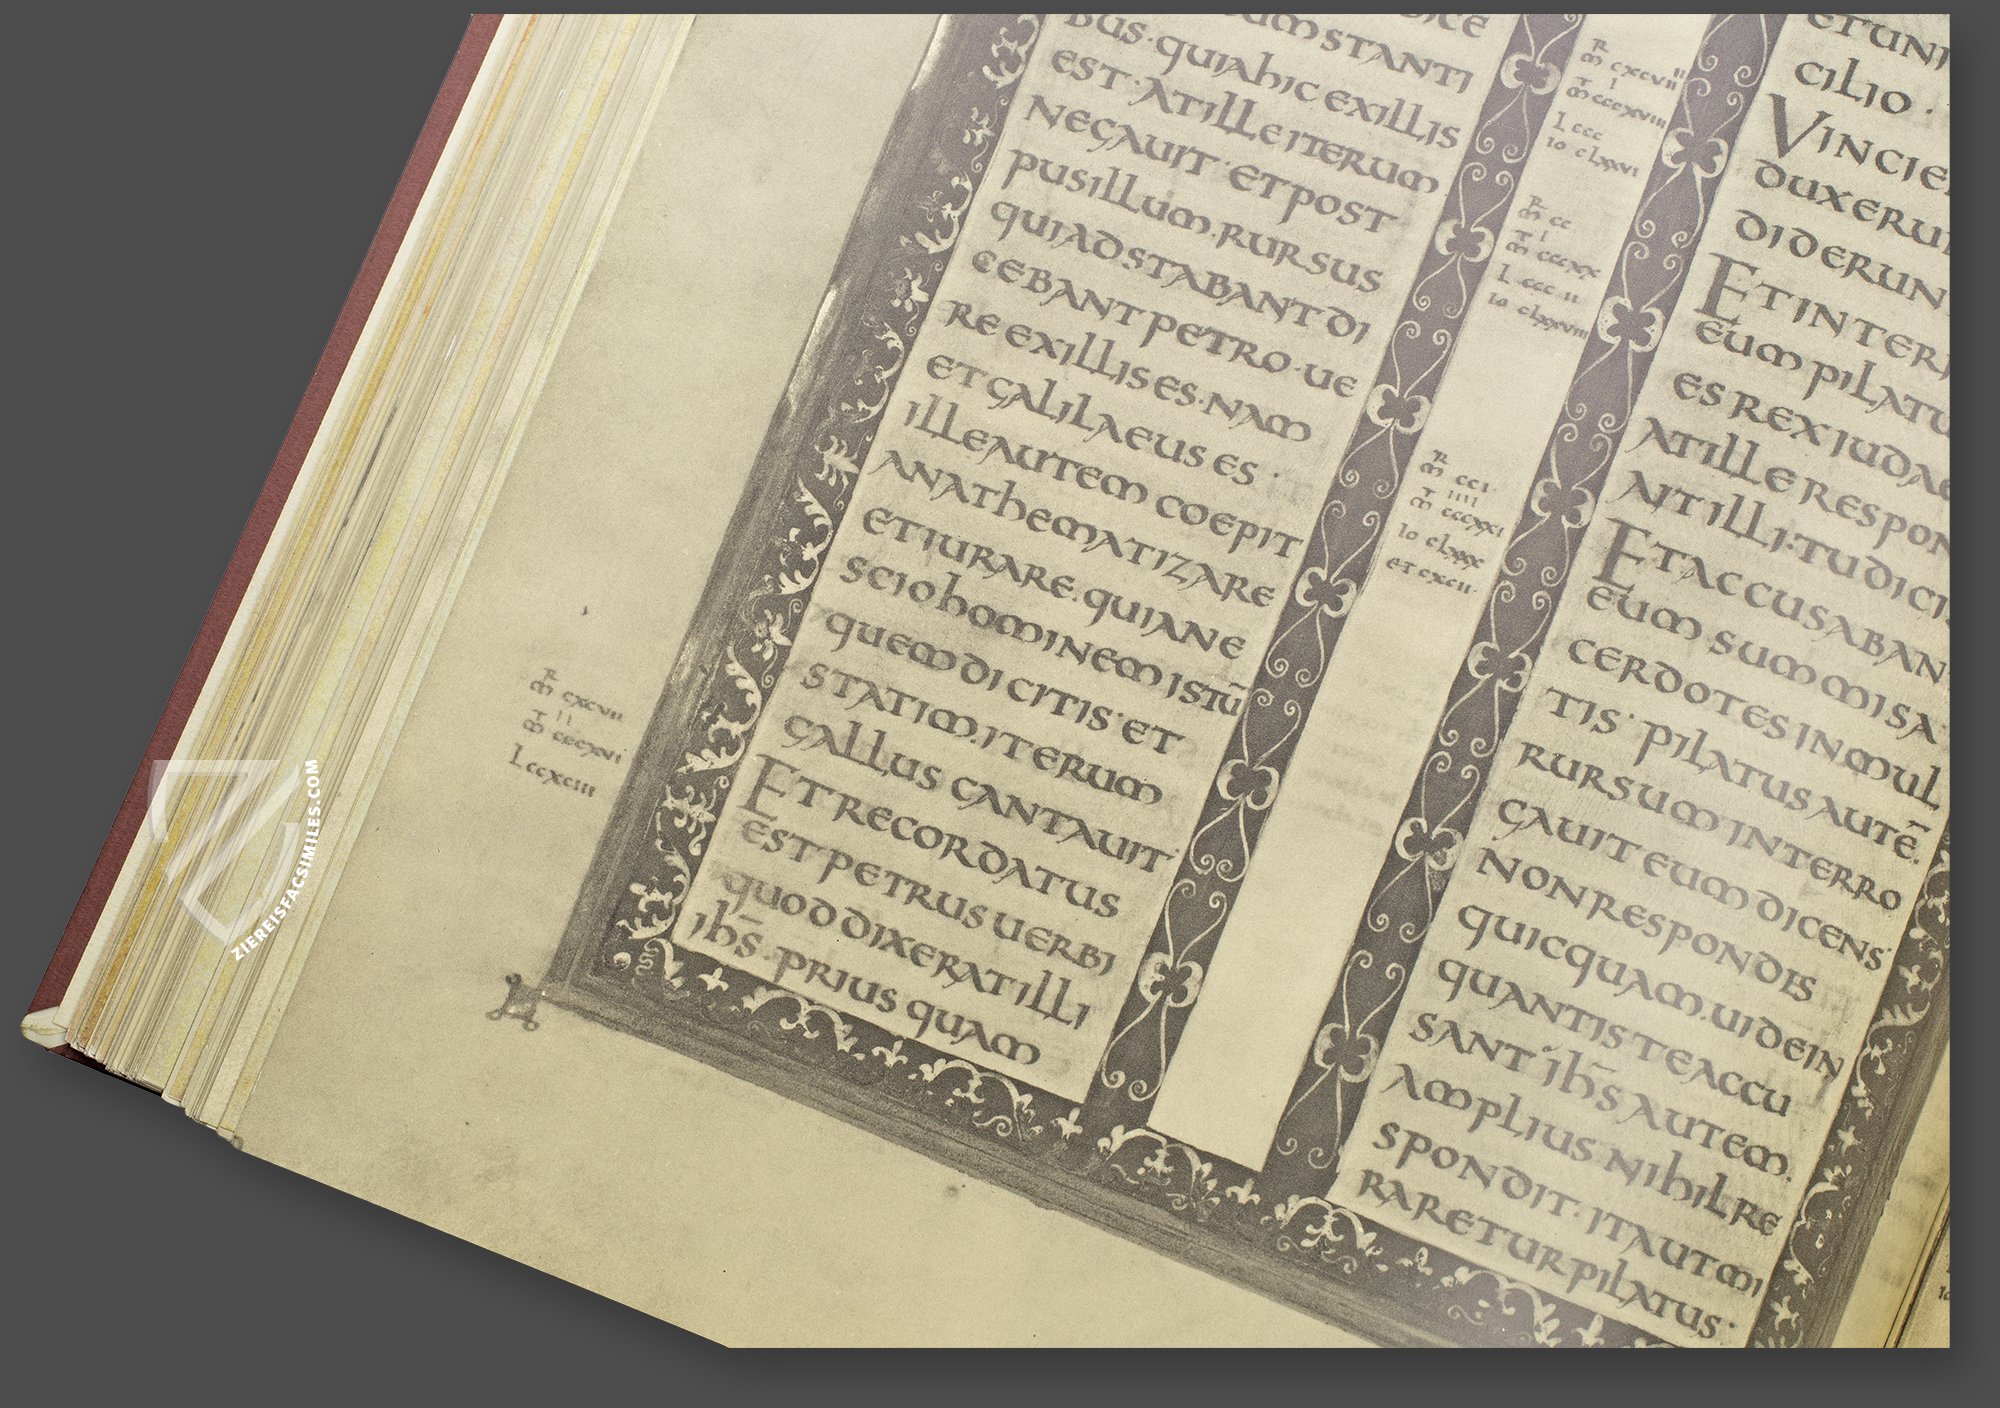 DICE
BUS·QUIAHIC EXILLIS
UMSTANTI
EST·ATILLEITERUM
NEGAUIT·ETPOST
PUSILLUM·RURSUS
QUIADSTABANTDI
CEBANTPETRO·UE
RE EXILLISES·NAM
ETGALILAEUS ES·
ILLEAUTEM COEPIT
ANATHEMATIZARE
ETIURARE·QUIANE
SCIOHOMINEMISTŪ
QUEMDICITIS·ET
STATIM·ITERUM
GALLUS CANTAUIT·
ETRECORDATUS
ESTPETRUS UERBI
QUODDIXERATILLI
IHS̄·PRIUS QUAM
R
M CXCVII
T II
M CCCXVI
L CCXCIII
R
M CXCVII
T I
M CCCXVIII
L CCC
IO CLXXVI
R
M CC
T I
M CCCXX
L CCC II
IO CLXXVIII
R
M CCI·
T IIII
M CCCXXI
IO CLXXX
ET CXCII·
ETUNI
CILIO·
VINCIE
DUXERU
DIDERUN
ETINTERR
EUM PILATU
ES REX IUDAE
ATILLE RESPON
AITILLI·TUDICI
ETACCUSABAN
EUM SUMMISA
CERDOTES INMUL
TIS· PILATUS AUTĒ·
RURSUMINTERRO
GAUIT EUM DICENS·
NONRESPONDIS
QUICQUAM·UIDEIN
QUANTISTEACCU
SANT·IHS̄ AUTEM·
AMPLIUS NIHILRE
SPONDIT·ITAUTMI
RARETURPILATUS·
ZIEREISFACSIMILES.COM